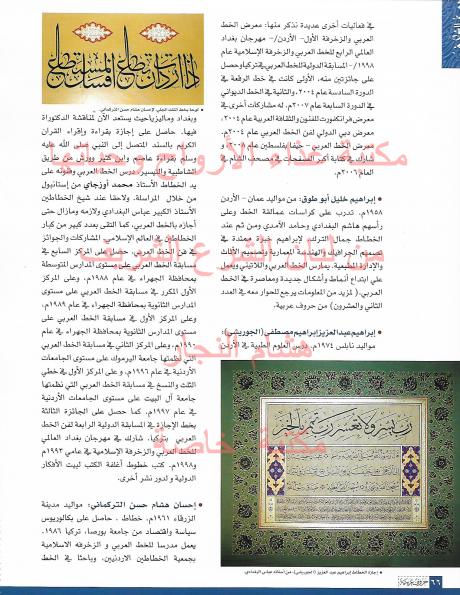 في فعاليات أخرى عديدة نذكر منها: معرض الخط
العربي والزخرفة الأول- الأردن/- مهرجان بغداد
العالمي الرابع للخط العربي والزخرفة الإسلامية عام
١٩٩٨/- المسابقة الدولية للخط العربي في تركيا وحصل
على جائزتين منه، الأولى كانت في خط الرقعة في
الدورة السادسة عام ٢٠٠٤، والثانية في الخط الديواني
في الدورة السابعة عام ٢٠٠٧م. له مشاركات أخرى في
معرض فرانكفورت للفنون والثقافة العربية عام ٢٠٠٤،
معرض دبي الدولي لفن الخط العربي عام ٢٠٠٤م.
معرض الخط العربي – حيفا بفلسطين عام ٢٠٠٨م.
شارك في كتابة أكبر الصفحات في مصحف الشام في
عام ٢٠٠٦م.
• إبراهيم خليل أبو طوق: من مواليد عمان – الأردن
١٩٥٨م. تدرب على كراسات عمالقة الخط وعلى
رأسهم هاشم البغدادي وحامد الآمدي ومن ثم عند
الخطاط جمال الترك، لإبراهيم خبرة ممتدة في
تصميم الجرافيك والهندسة المعمارية وتصميم الأثاث
والإدارة المطبعية. يمارس الخط العربي واللاتيني ويعمل
على ابتداع أنماط وأشكال جديدة ومعاصرة في الخط
العربي. ( لمزيد من المعلومات يرجع للحوار معه في العدد
الثاني والعشرون) من حروف عربية.
• إبراهيم عبد العزيز إبراهيم مصطفى (الجوريشي):
مواليد نابلس ١٩٧٤م. درس العلوم الطبية في الأردن
• لوحة بخط الثلث الجلي لإحسان هشام حسن التركماني.
وبغداد وماليزيا حيث يستعد الآن لمناقشة الدكتوراة
فيها. حاصل على إجازة بقراءة وإقراء القرآن
الكريم بالسند المتصل إلى النبي صلى الله عليه
وسلم بقراءة عاصم وابن كثير وورش من طريق
الشاطبية والتيسير. درس الخط العربي وفنونه على
يد الخطاط الأستاذ محمد أوزجاي من إستانبول
من خلال المراسلة. ولاحقا عند شيخ الخطاطين
الأستاذ الكبير عباس البغدادي ولازمه ومازال حتى
أجازه بالخط العربي. كما التقى بعدد كبير من كبار
الخطاطين في العالم الإسلامي. المشاركات والجوائز
في فن الخط العربي، حصل على المركز السابع في
مسابقة الخط العربي على مستوى المدارس المتوسطة
بمحافظة الجهراء في عام ١٩٨٨م. وعلى المركز
الأول المكرر في مسابقة الخط العربي على مستوى
المدارس الثانوية بمحافظة الجهراء في عام ١٩٨٩م.
وعلى المركز الأول في مسابقة الخط العربي على
مستوى المدارس الثانوية بمحافظة الجهراء في عام
١٩٩٠م. وعلى المركز الثاني في مسابقة الخط العربي
التي نظمتها جامعة اليرموك على مستوى الجامعات
الأردنية في عام ١٩٩٦م. و على المركز الأول في خطي
الثلث والنسخ في مسابقة الخط العربي التي نظمتها
جامعة آل البيت على مستوى الجامعات الأردنية
في عام ١٩٩٧م. كما حصل على الجائزة الثالثة
بخط الإجازة في المسابقة الدولية الرابعة لفن الخط
العربي بتركيا. شارك في مهرجان بغداد العالمي
للخط العربي والزخرفة الإسلامية في عامي ١٩٩٣م
و١٩٩٨م. كتب خطوط أغلفة الكتب لبيت الأفكار
الدولية و لدور نشر أخرى.
• إحسان هشام حسن التركماني: مواليد مدينة
الزرقاء ١٩٦١م. خطاط . حاصل على بكالوريوس
سياسة واقتصاد من جامعة بورصا، تركيا ١٩٨٦.
يعمل مدرسا للخط العربي و الزخرفه الاسلامية
بجمعية الخطاطين الاردنيين، وباحثا في الخط
رب يسر ولا تعسر رب تمم بالخير
• إجازة الخطاط إبراهيم عبد العزيز (الجوريشي)، من أستاذه عباس البغدادي
٦٦
حروف عربية